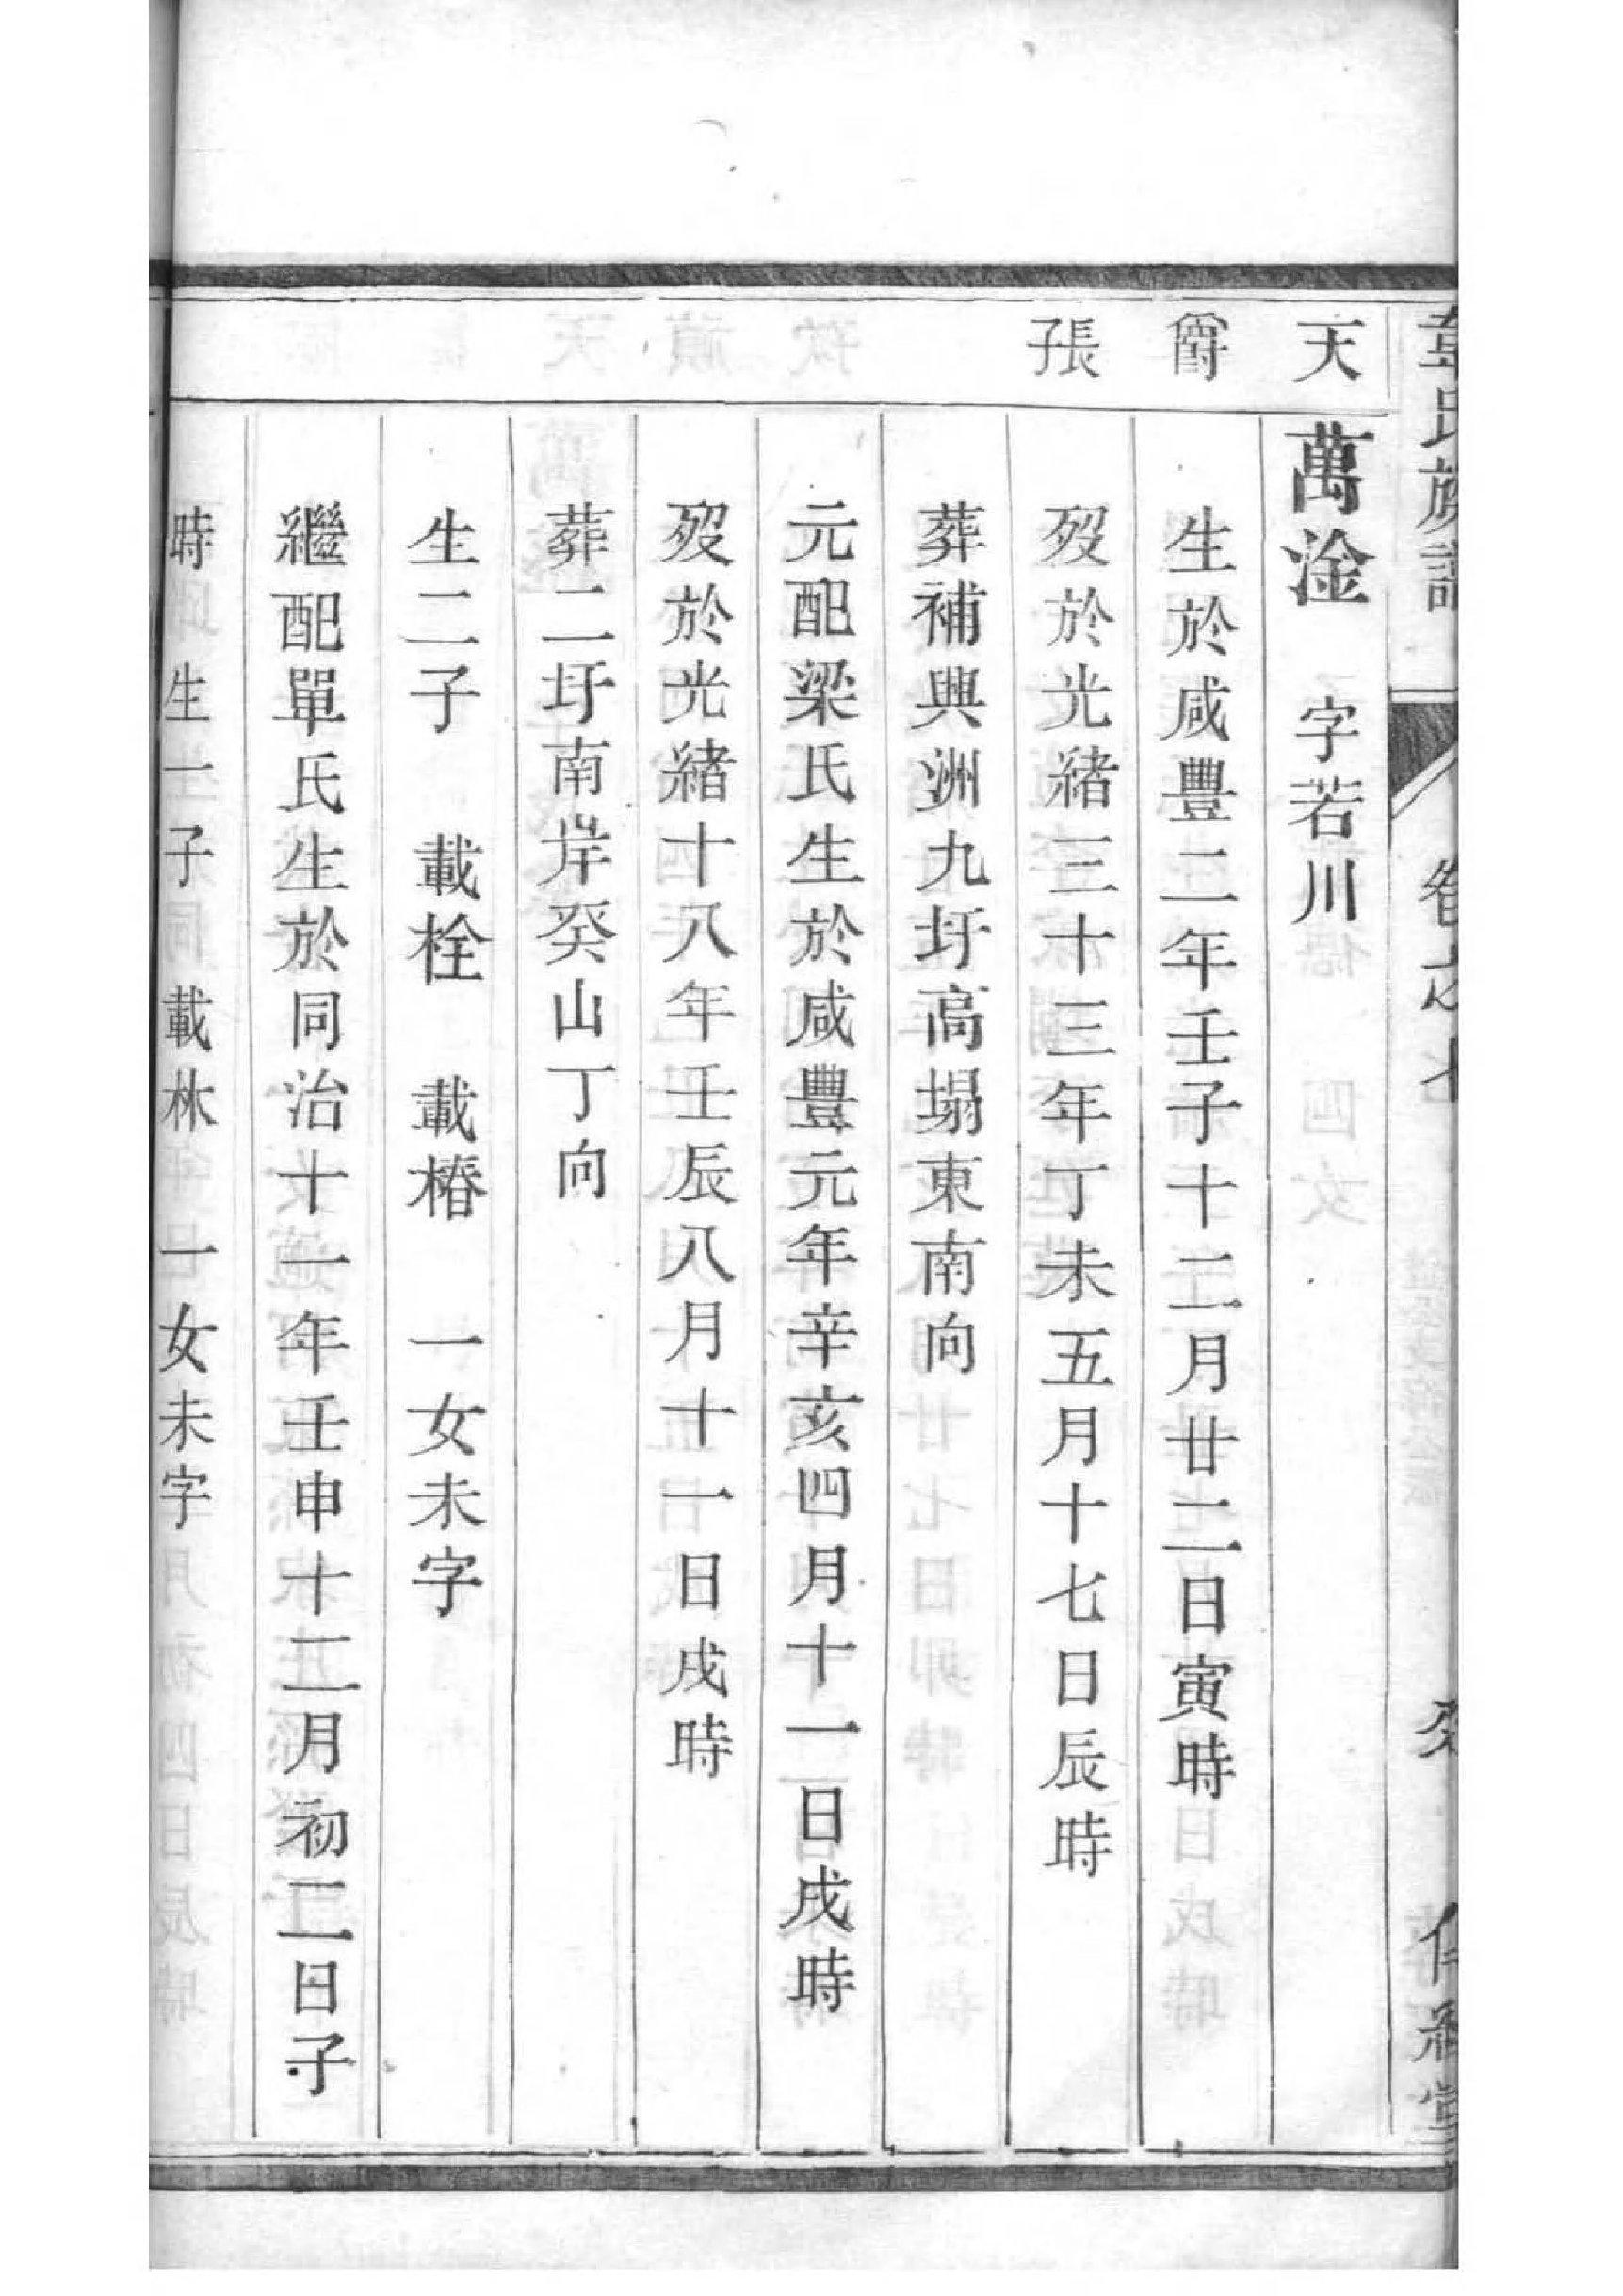 韋氏族譜 卷之七
天爵長子
萬淦 字若川
生於咸豐二年壬子十二月廿二日寅時
歿於光緒三十三年丁未五月十七日辰時
葬補興洲九圩高塌東南向
元配梁氏生於咸豐元年辛亥四月十一日戌時
歿於光緒十八年壬辰八月十一日戌時
葬二圩南岸癸山丁向
生二子 載栓 載椿 一女未字
繼配單氏生於同治十一年壬申十二月初二日子
時 生一子 載林 一女未字